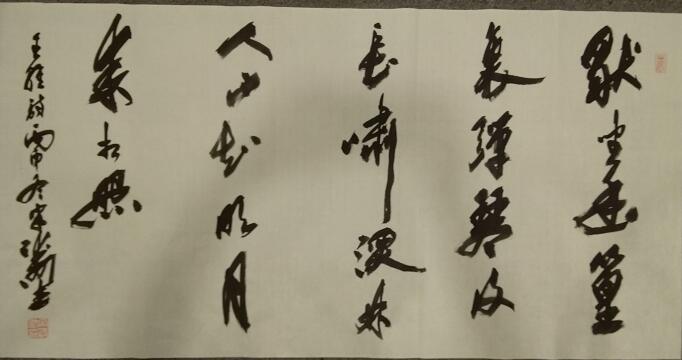 獨坐幽篁
裏彈琴復
長嘯深林
人不知明月
來相照
王維詩丙申冬